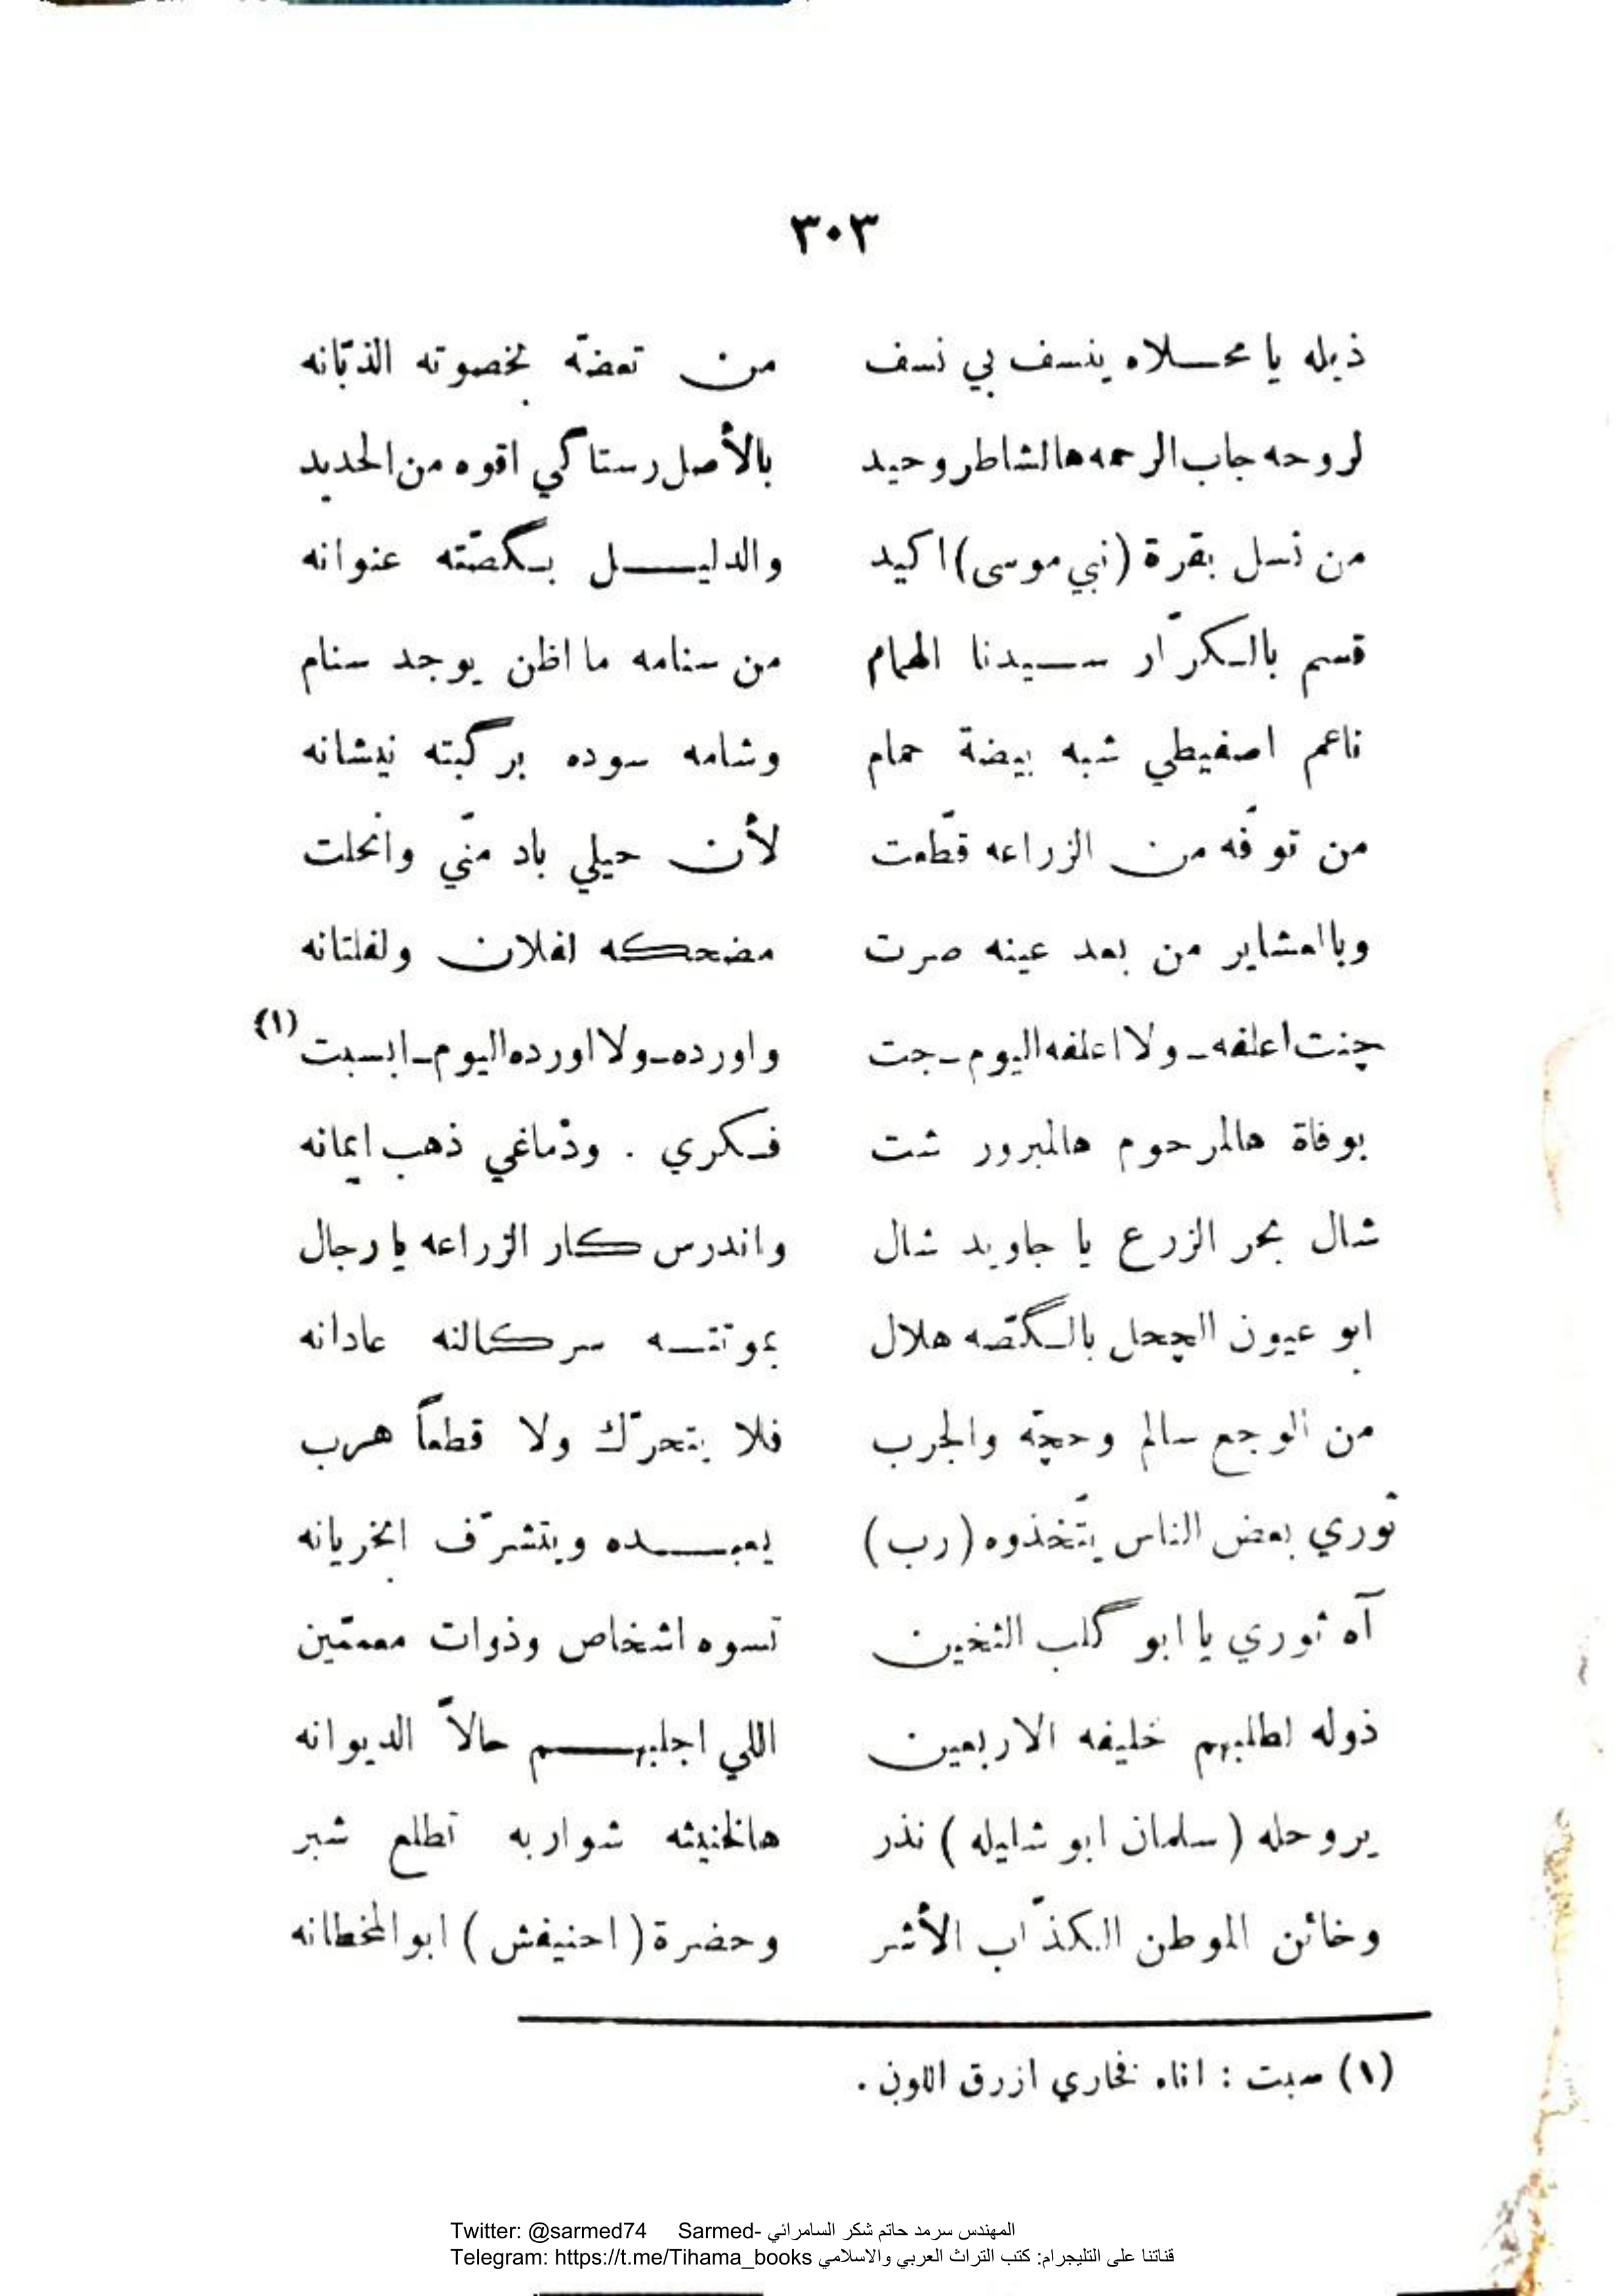 ٣٠٣
ذيله يا محـــلاه ينسف بي نسف من تعضّه بخصوته الذبّانه
لروحه جاب الرحمه هالشاطر وحيد بالأصل رستاكي اقوه من الحديد
من نسل بقرة (نبي موسى) اكيد والدليـــــل بـگصّته عنوانه
قسم بالـكرّار ســـيدنا الهمام من سنامه ما اظن يوجد سنام
ناعم اصفيطي شبه بيضة حمام وشامه سوده برگبته نيشانه
من توفّه من الزراعه قطّعت لأن حيلي باد منّي وانحلت
وباامشاير من بعد عينه صرت مضحكه افلان ولفلتانه
چنت اعلفه ـ ولا اعلفه اليوم ـ جت واورده ـ ولا اورده اليوم ـ ابسبت (١)
بوفاة هالمرحوم هالمبرور شت فـكري . ودماغي ذهب ايمانه
شال بحر الزرع يا جاويد شال واندرس كار الزراعه يا رجال
ابو عيون الچحل بالـگصّه هلال بموتتـــه سركالنه عادانه
من الوجع سالم وحچّه والجرب فلا يتحرّك ولا قطعاً هرب
ثوري بعض الناس يتّخذوه (رب) يعبـــــده ويتشرّف الخريانه
آه ثوري يا ابو گلب الثخين تسوه اشخاص وذوات معمّمين
ذوله اطلبهم خليفه الاربعين اللي اجلبهـــــم حالاً الديوانه
يروحله (سلمان ابو شليله) نذر هالخنيثه شواربه تطلع شبر
وخائن الموطن الـكذّاب الأشر وحضرة (احنيفش) ابو المخطانه
(١) سبت : اناء فخاري ازرق اللون .
Twitter: @sarmed74 Sarmed- المهندس سرمد حاتم شكر السامرائي
Telegram: https://t.me/Tihama_books قناتنا على التليجرام: كتب التراث العربي والاسلامي